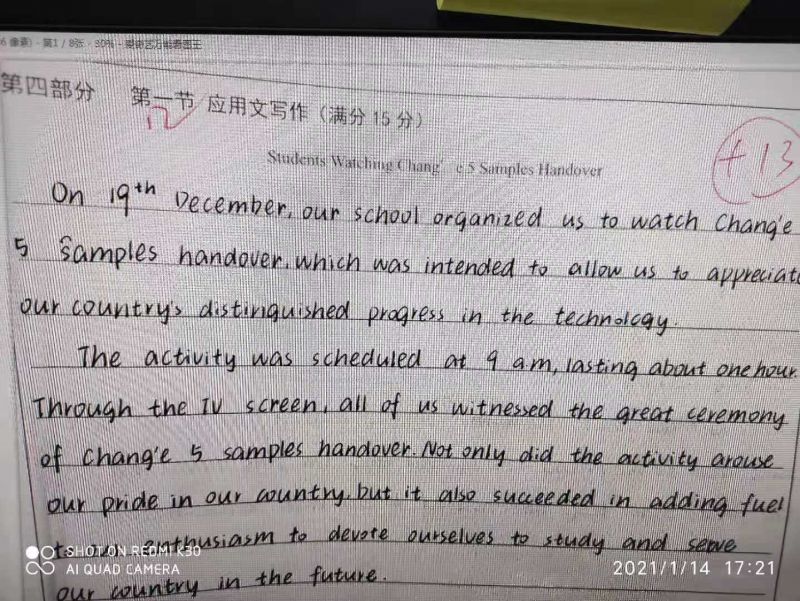 第1 / 8张 · 30%
第四部分 第一节 应用文写作（满分 15 分）
12
+13
Students Watching Chang'e 5 Samples Handover
On 19th December, our school organized us to watch Chang'e
5 samples handover, which was intended to allow us to appreciate
our country's distinguished progress in the technology.
The activity was scheduled at 9 am, lasting about one hour.
Through the TV screen, all of us witnessed the great ceremony
of Chang'e 5 samples handover. Not only did the activity arouse
our pride in our country, but it also succeeded in adding fuel
enthusiasm to devote ourselves to study and serve
our country in the future.
SHOT ON REDMI K30
AI QUAD CAMERA
2021/1/14 17:21